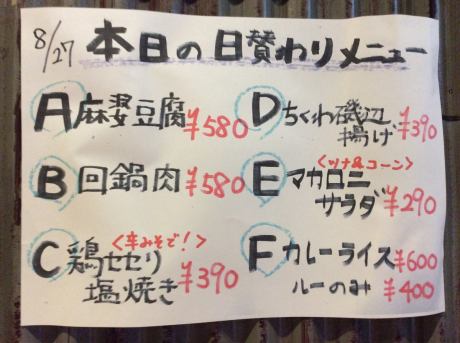 8/27 本日の日賛わりメニュー
A 麻婆豆腐 ¥580
B 回鍋肉 ¥580
C 鶏セセリ <辛みそで!>
塩焼き ¥390
D ちくわ磯辺
揚げ ¥390
<ツナ&コーン>
E マカロニ
サラダ ¥290
F カレーライス ¥600
ルーのみ ¥400